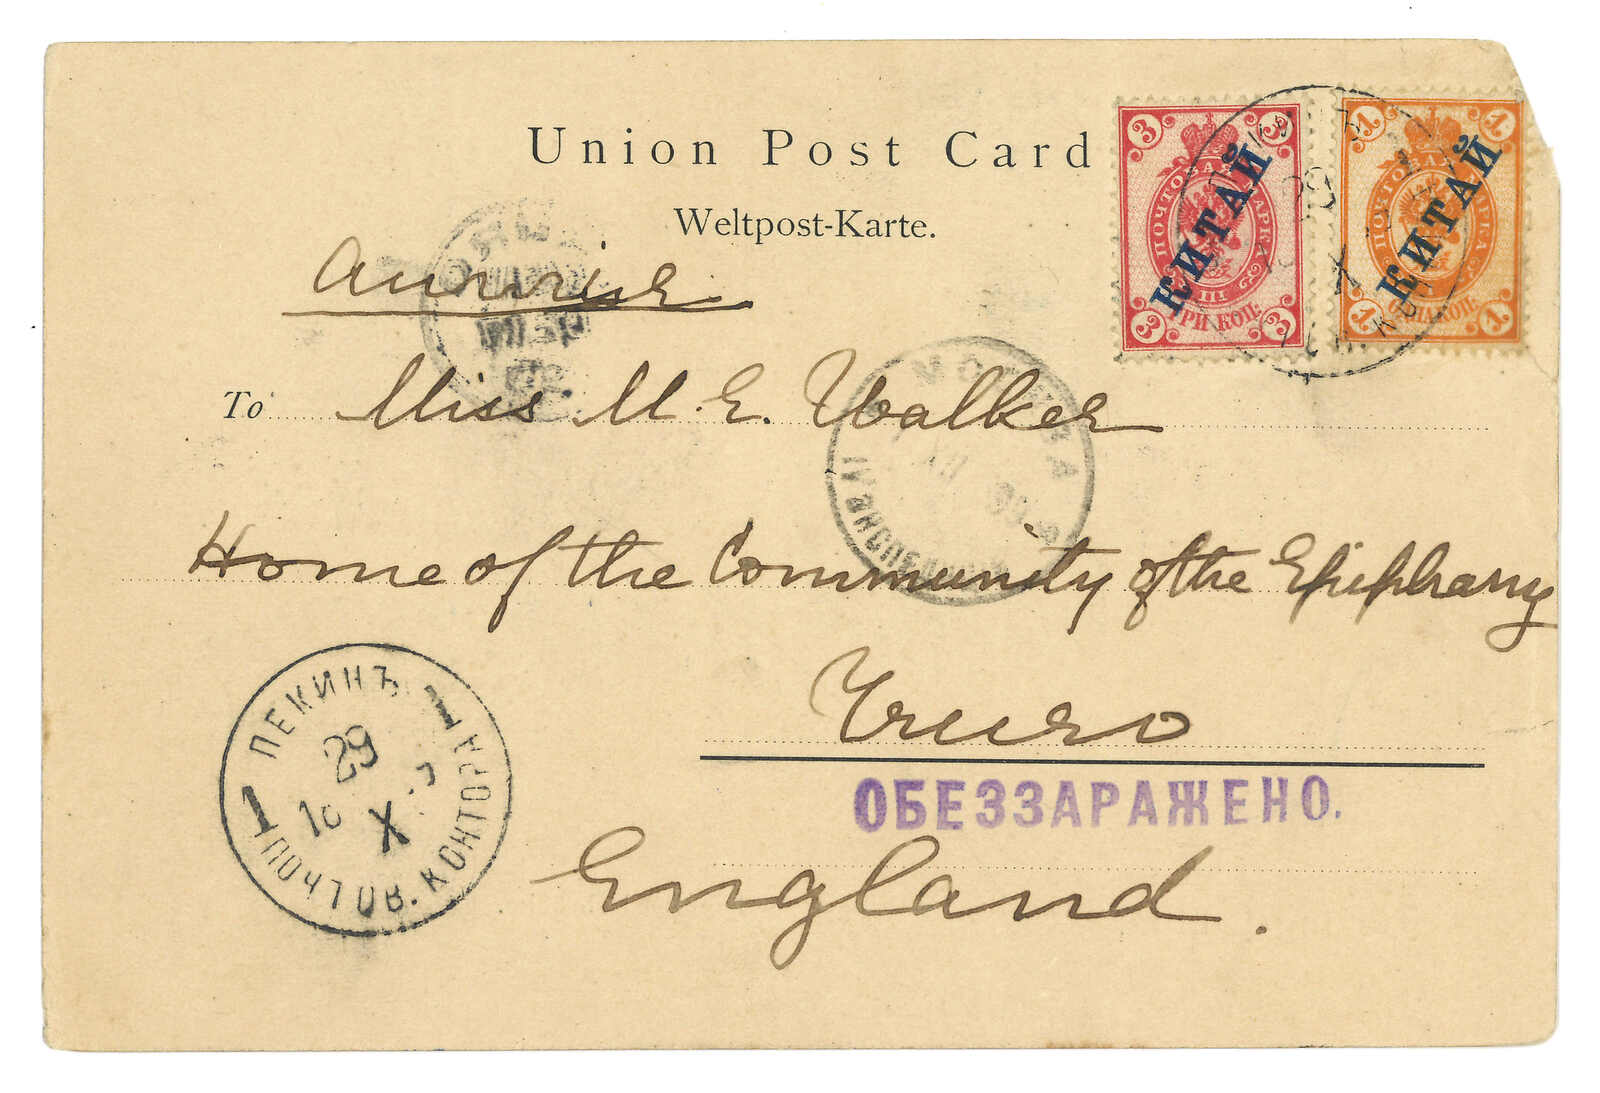 Union Post Card
Weltpost-Karte.
3 3
ПОЧТОВАЯ МАРКА
КИТАЙ
III
ТРИ КОП:
3 3
1 1
ПОЧТОВАЯ МАРКА
КИТАЙ
КОП:
1 1
To Miss M. E. Walker
МОСКВА
Home of the Community of the Epiphany
Truro
ПЕКИНЪ
29
X
1 1
ПОЧТОВ. КОНТОРА
ОБЕЗЗАРАЖЕНО.
England.